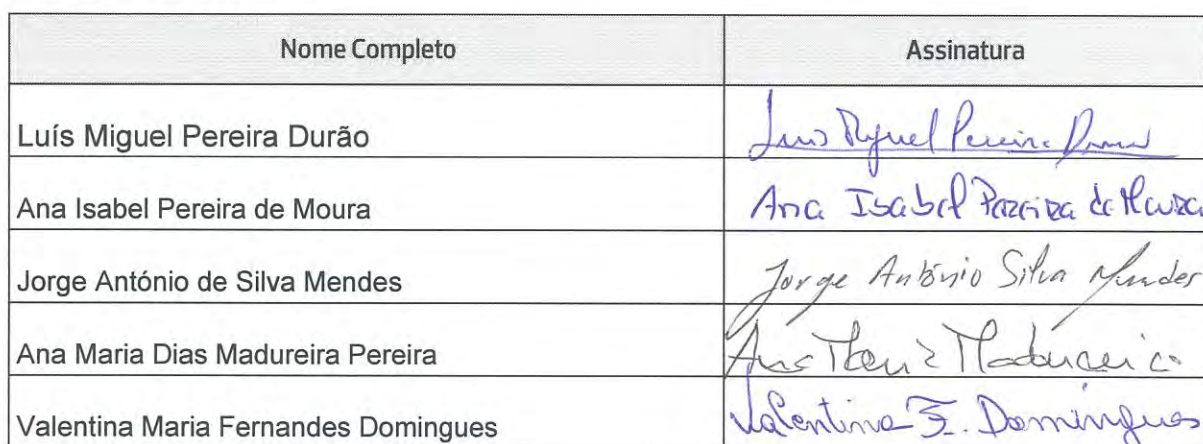 Nome Completo Assinatura
Luís Miguel Pereira Durão Luis Miguel Pereira Durão
Ana Isabel Pereira de Moura Ana Isabel Pereira de Moura
Jorge António de Silva Mendes Jorge António Silva Mendes
Ana Maria Dias Madureira Pereira Ana Maria Madureira
Valentina Maria Fernandes Domingues Valentina F. Domingues